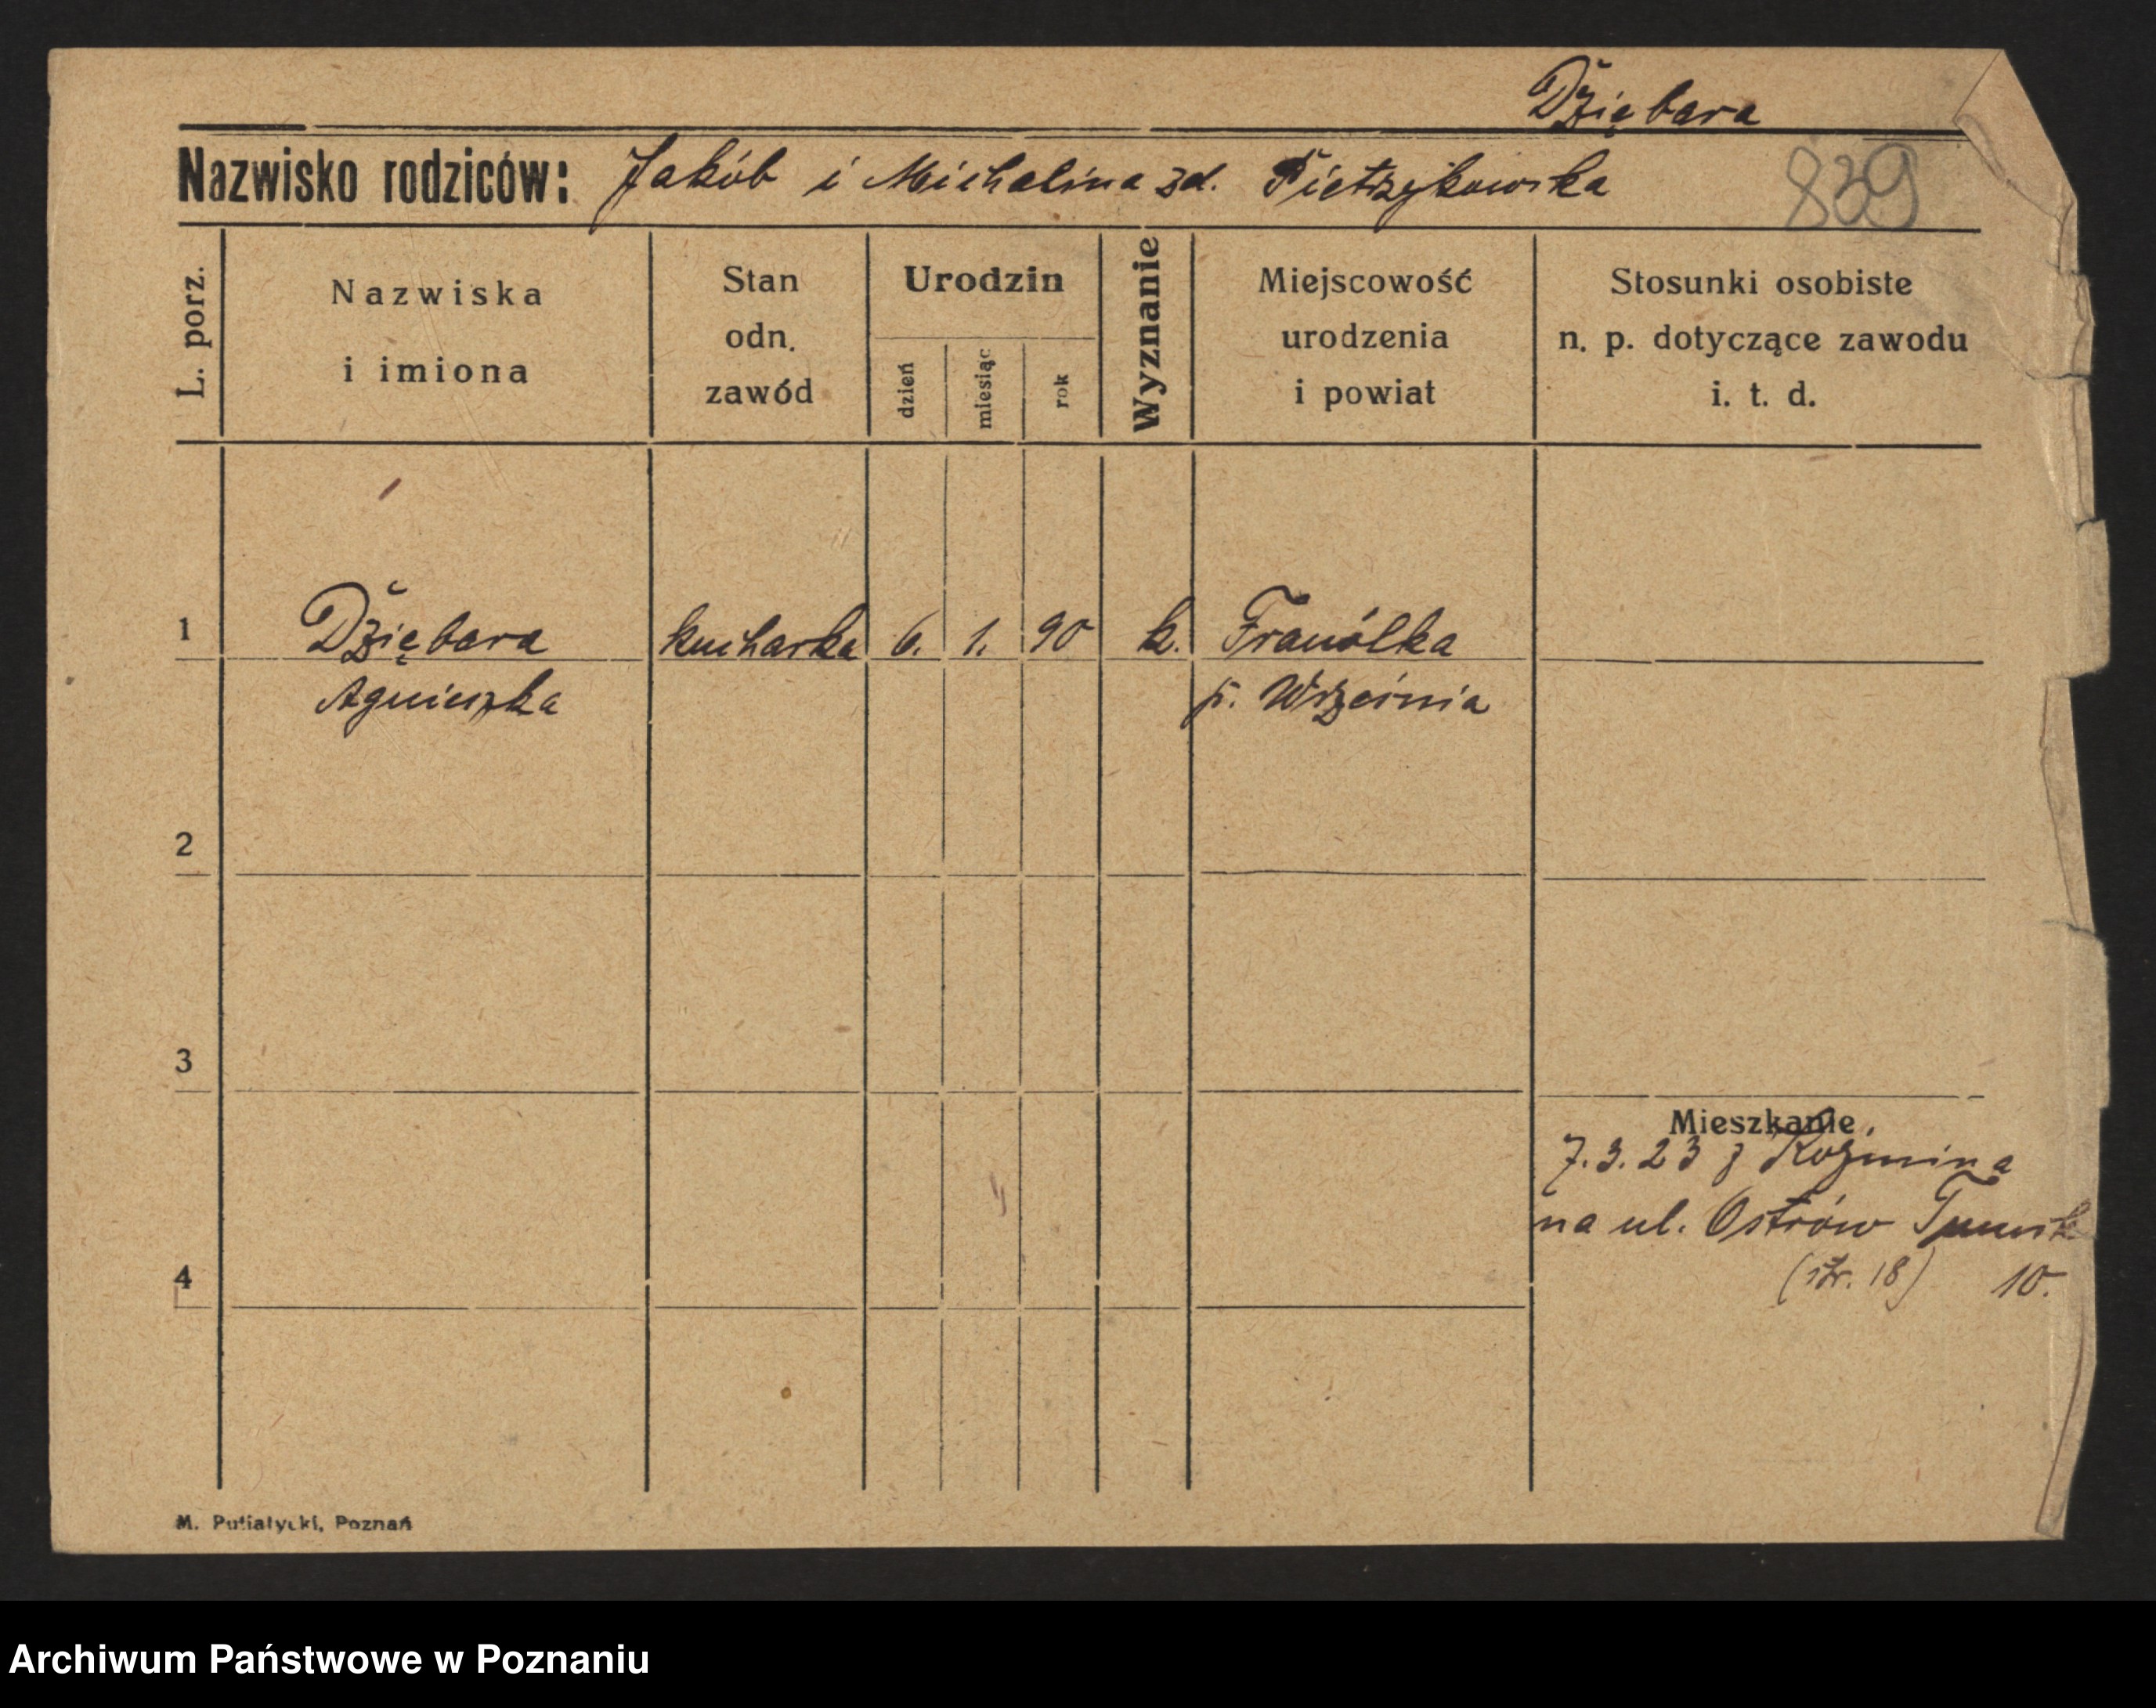 Dżiębara
Nazwisko rodziców: Jakób i Michalina zd. Pietrzykowska
839
L. porz.
Nazwiska
i imiona
Stan
odn.
zawód
Urodzin
dzień
miesiąc
rok
Wyznanie
Miejscowość
urodzenia
i powiat
Stosunki osobiste
n. p. dotyczące zawodu
i. t. d.
1 Dżiębara kucharka 6. 1. 90 k.
Agnieszka p. Września
2
3
Mieszkanie
7.3.23 z Koźmina
na ul. Ostrów Tumsk
(str. 18) 10.
4
M. Putiatycki, Poznań
Archiwum Państwowe w Poznaniu